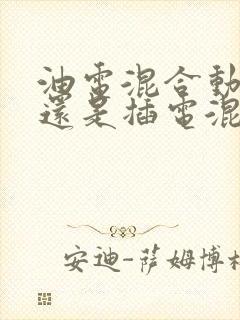 油電混合動
還是插電混
安迪-萨姆博